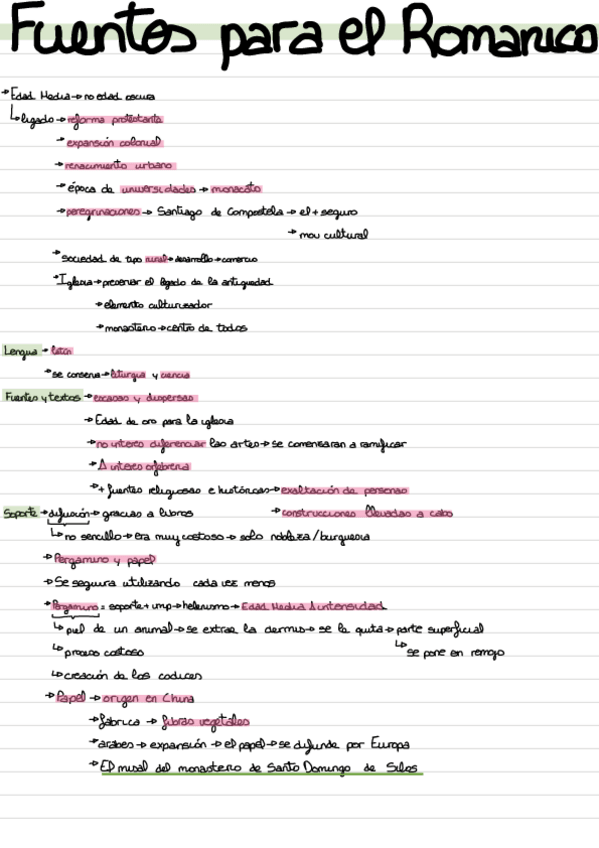 Fuentes para el Romanico
→ Edad Media → no edad oscura
↳ ligado → reforma protestante
→ expansión colonial
→ renacimiento urbano
→ época de universidades → monacato
→ peregrinaciones → Santiago de Compostela → el + seguro
→ mov cultural
→ sociedad de tipo rural → desarrollo → comercio
→ Iglesia → preservar el legado de la antiguedad
→ elemento culturizador
→ monasterio → centro de todos
Lengua → latín
→ se conserva → liturgia y ciencia
Fuentes y textos → escasos y dispersas
→ Edad de oro para la iglesia
→ no interes diferenciar las artes → se comenzaran a ramificar
→ Δ interes orfebreria
→ + fuentes religiosas e históricas → exaltación de personas
→ construcciones llevadas a cabo
Soporte → difusión → gracias a libros
↳ no sencillo → era muy costoso → solo nobleza/burguesia
→ Pergamino y papel
→ Se seguira utilizando cada vez menos
→ Pergamino = soporte + imp → helenismo → Edad Media Δ intensidad
↳ piel de un animal → se extrae la dermis → se le quita → parte superficial
↳ proceso costoso ↳ se pone en remojo
↳ creación de los codices
→ Papel → origen en China
→ fabrica → fibras vegetales
→ arabes → expansión → el papel → se difunde por Europa
→ El misal del monasterio de Santo Domingo de Silos